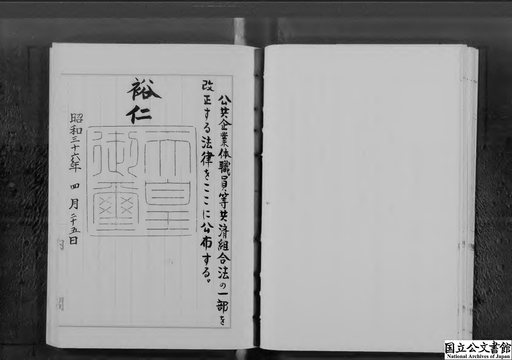 公共企業体職員等共済組合法の一部を
改正する法律をここに公布する。
裕仁
天皇
御璽
昭和三十六年四月二十五日
国立公文書館
National Archives of Japan